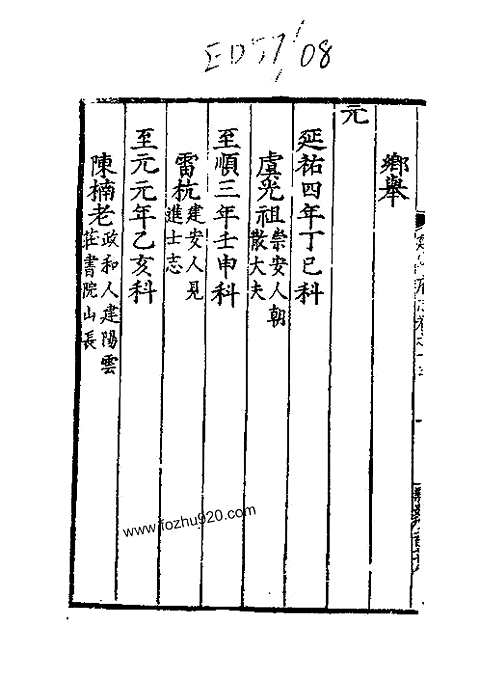 ED57/08
鄉舉
元
延祐四年丁巳科
虞光祖崇安人朝
散大夫
至順三年壬申科
雷杭建安人見
進士志
至元元年乙亥科
陳楠老政和人建陽雲
莊書院山長
www.fozhu920.com